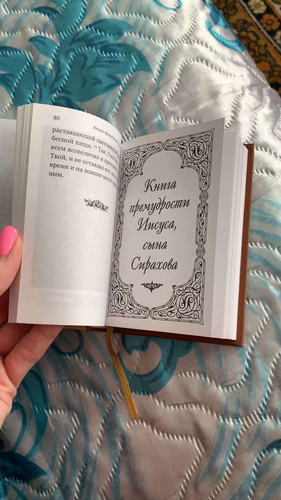 80
растаивающий
бесной пищи.
всем возвеличил и
Твой, и не оставлял его,
время и на всяком месте
ним.
Книга
премудрости
Иисуса,
сына
Сирахова